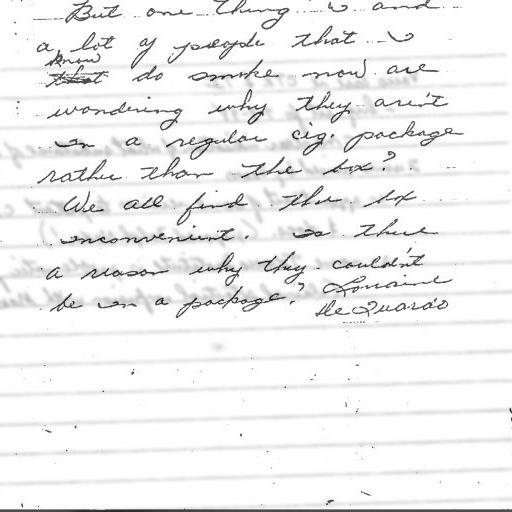 But one thing I and
a lot of people that I
know
that do smoke now are
wondering why they aren't
in a regular cig. package
rather than the box?
We all find the box
inconvenient. Is there
a reason why they couldn't
be in a package? Lorraine